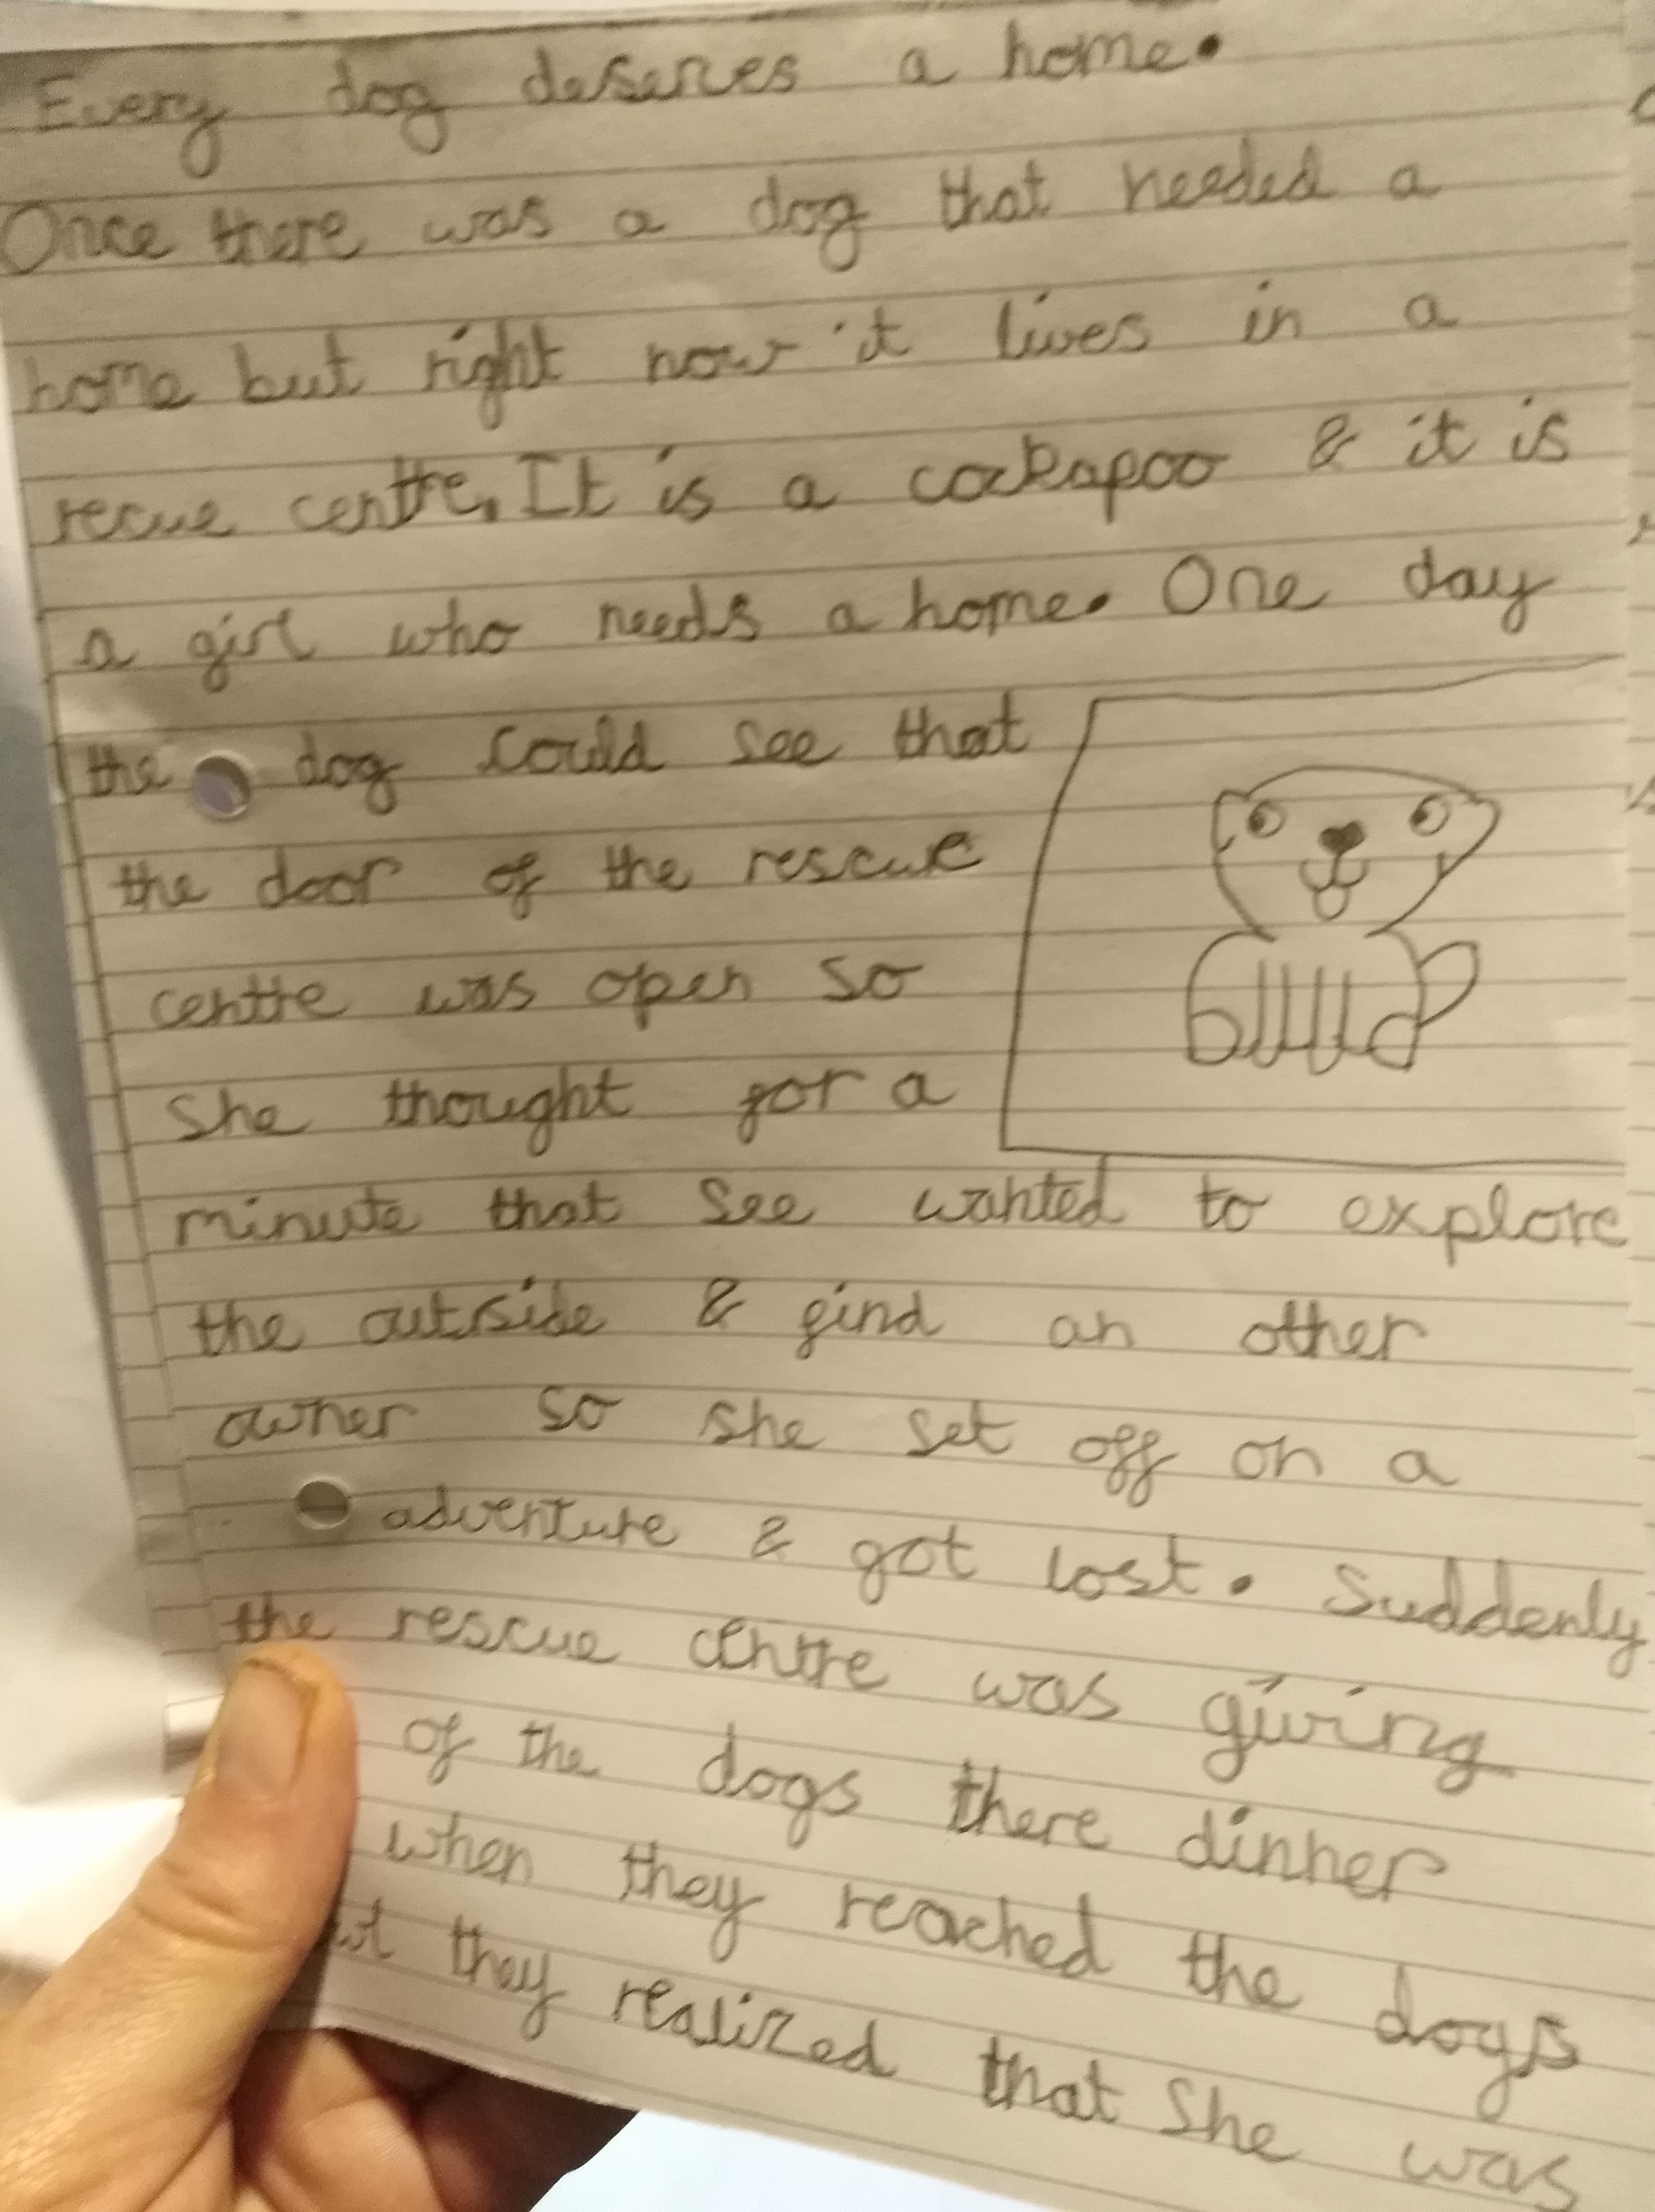 Every dog deserves a home.
Once there was a dog that needed a
home but right now it lives in a
recue centre. It is a cockapoo & it is
a girl who needs a home. One day
the dog could see that
the door of the rescue
centre was open so
she thought for a
minute that see wanted to explore
the outside & find an other
owner so she set off on a
adventure & got lost. Suddenly
the rescue centre was giving
of the dogs there dinner
when they reached the dogs
they realized that she was